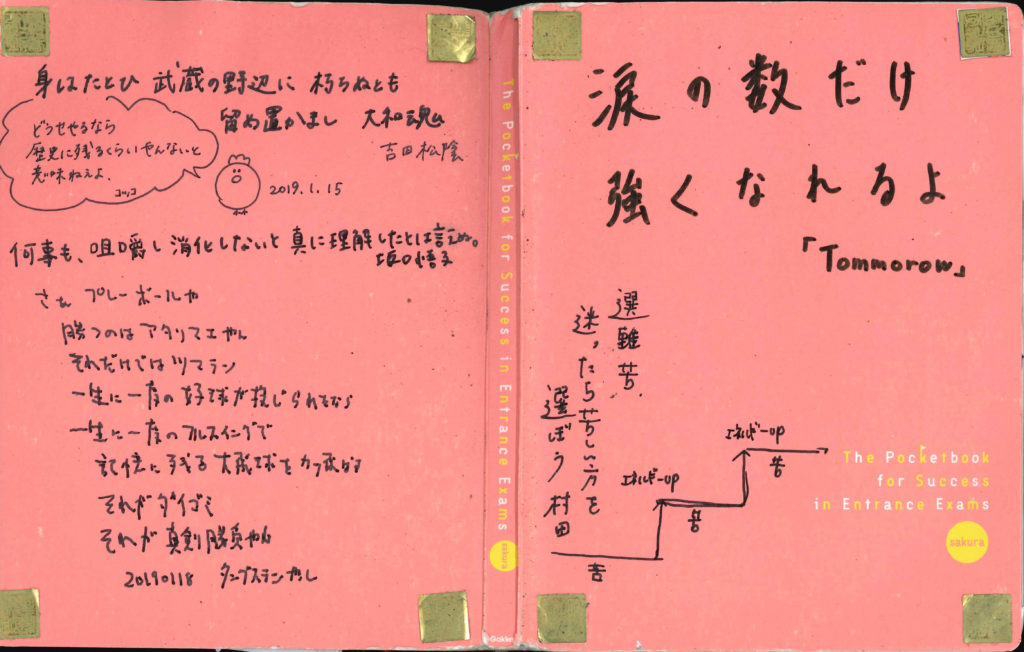 身はたとひ 武蔵の野辺に 朽ちぬとも
留め置かまし 大和魂
吉田松陰
どうせやるなら
歴史に残るくらいやんないと
意味ねえよ、
コッコ
2019.1.15
何事も、咀嚼し消化しないと真に理解したとは言えぬ。
坂口悟子
さぁ プレーボールや
勝つのはアタリマエやん
それだけではツマラン
一生に一度の好球が投じられそなら
一生に一度のフルスイングで
記憶に残る大飛球をカッ飛ばす
それがダイゴミ
それが真剣勝負やん
20190118
The Pocketbook for Success in Entrance Exams
sakura
Gakken
涙の数だけ
強くなれるよ
「Tommorow」
選難苦
迷ったら苦しい方を
選ぼう 村田
エネルギーup
苦
エネルギーup
苦
苦
The Pocketbook
for Success
in Entrance Exams
sakura